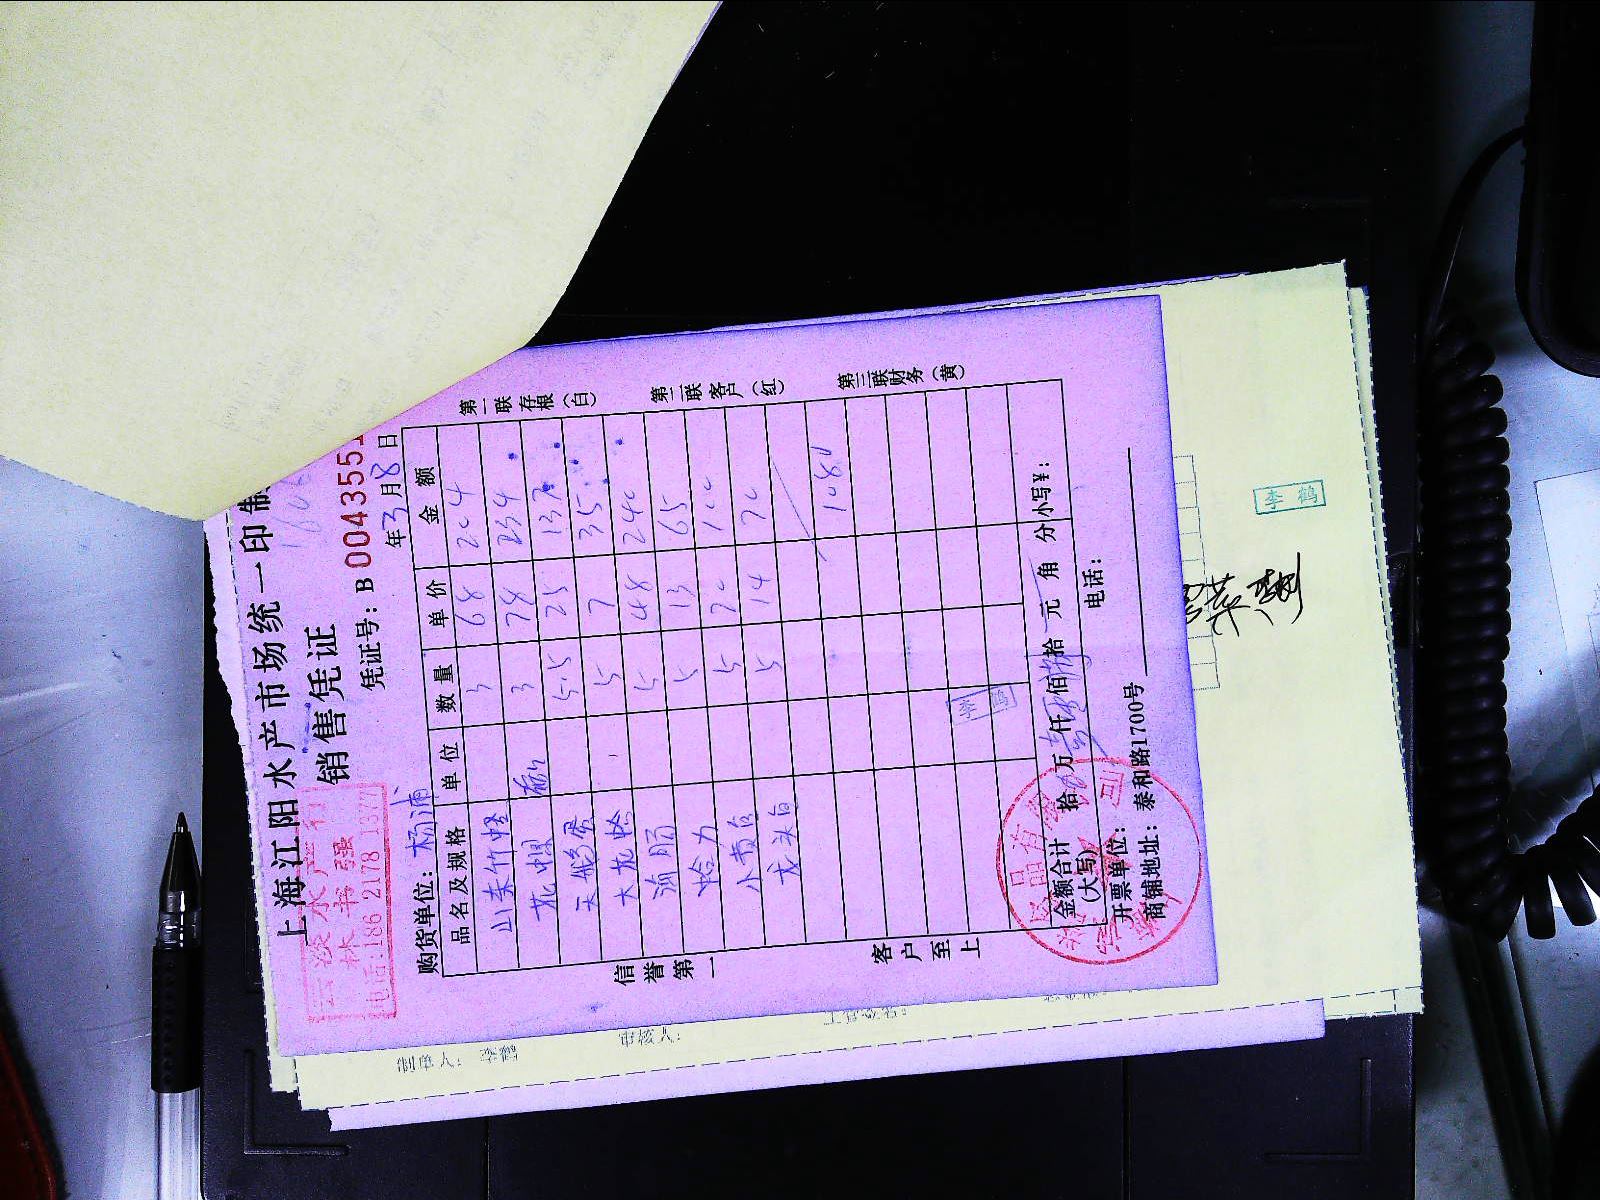 上海江阳水产市场统一印制
销售凭证
凭证号：B 0043551
年3月8日
购货单位：杨浦
品名及规格 单位 数量 单价 金额
山东竹蛏 3 68 204
花螺 3 78 234
天鹅蛋 5.5 25 137
大花蛤 5 7 35
海肠 5 48 240
蛤力 5 13 65
小黄白 5 20 100
戈头白 5 14 70
1081
金额合计(大写) 拾 万 仟 佰 拾 元 角 分 小写¥：
开票单位： 电话：
商铺地址：泰和路1700号
第一联存根(白)
第二联客户(红)
第三联财务(黄)
信誉第一
客户至上
水产行
林书强
电话:186 2178 1377
李鹤
李鹤